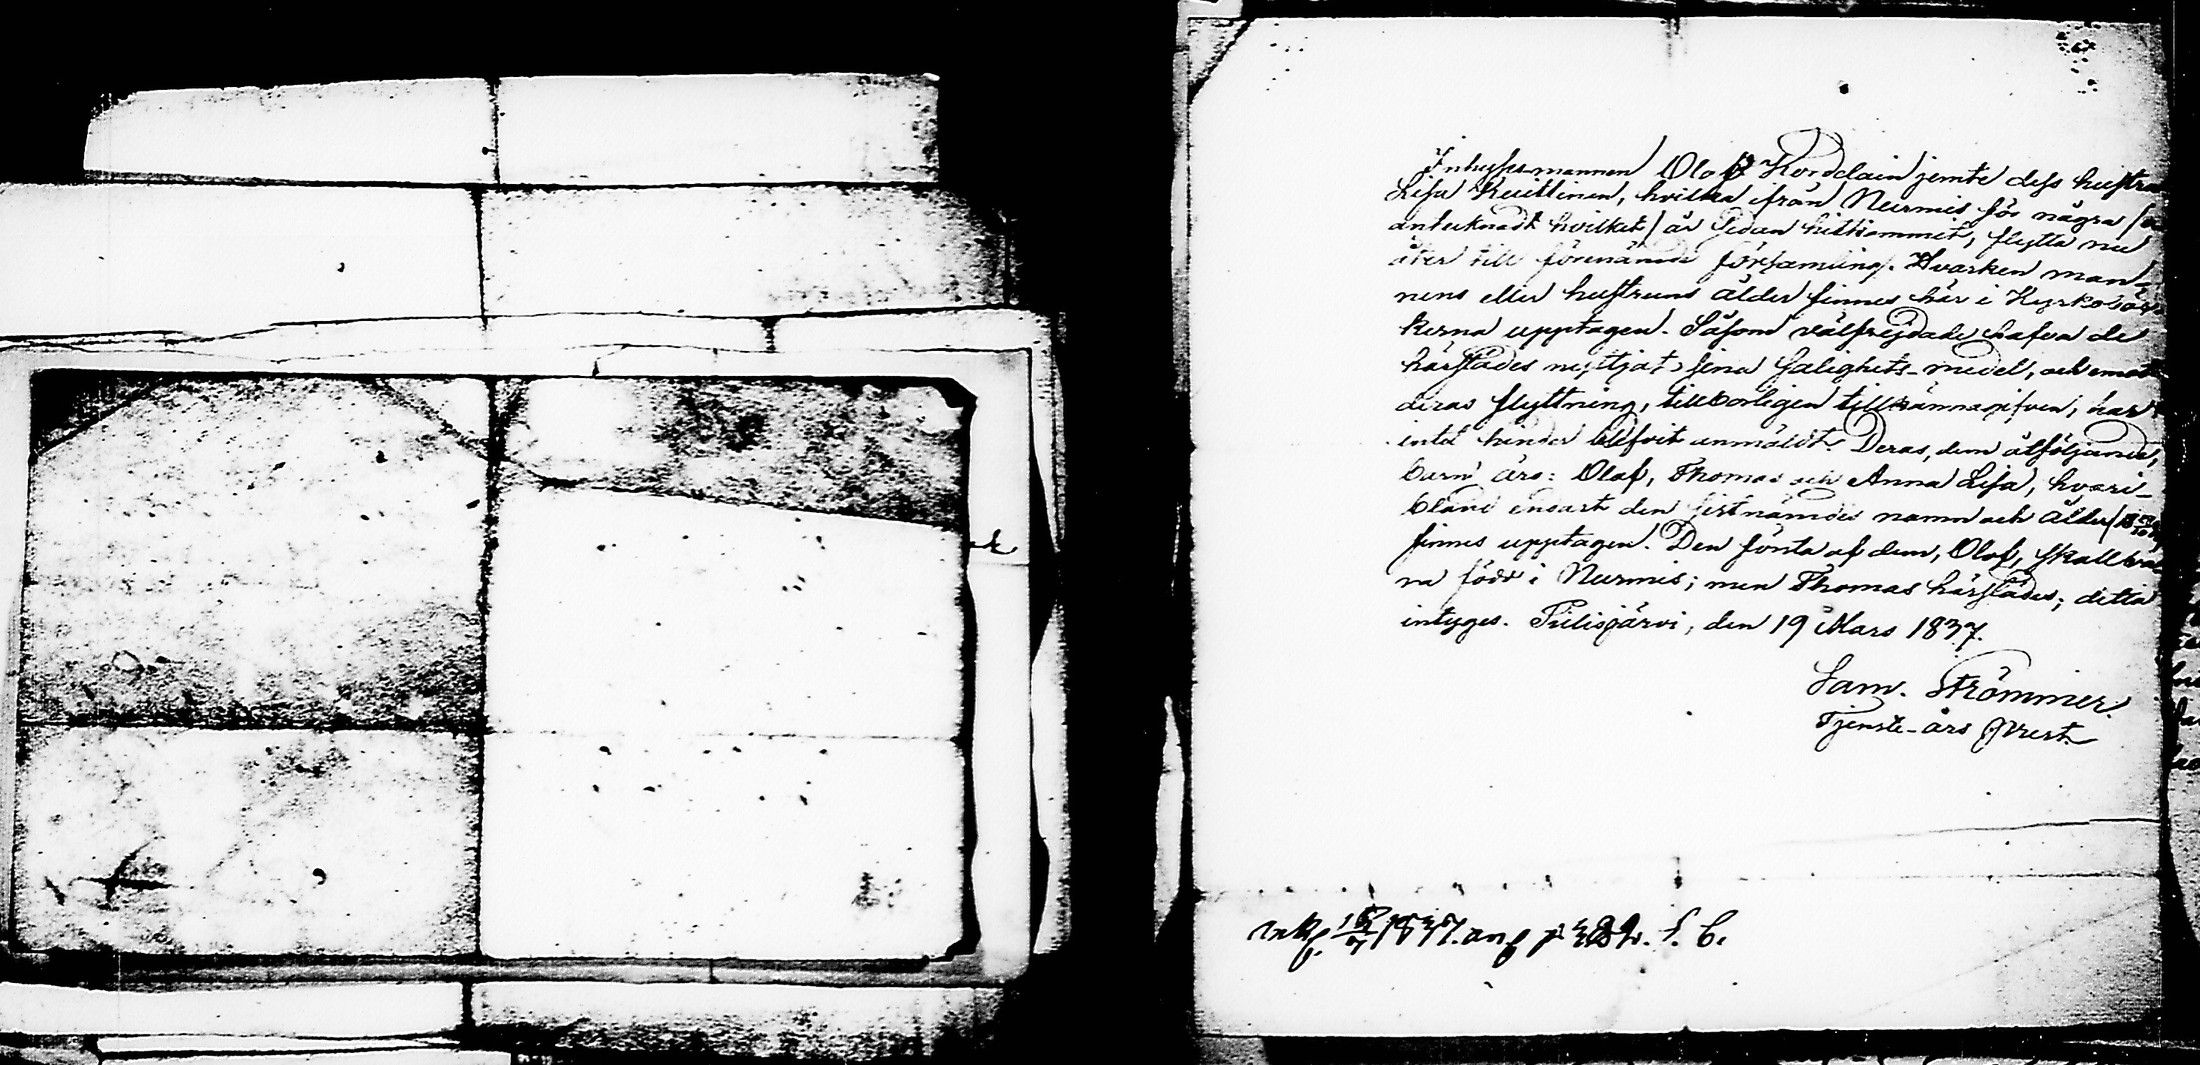 Inhysesmannen Olof Kordelain jemte dess hustru
Lisa Kuittinen, hvilka ifrån Nurmis för några
antecknadt hvilket / år sedan hitkommit, flytta nu
åter till förenämde församling. Hvarken man-
nens eller hustruns ålder finnes här i Kyrkobö
kerna upptagen. Såsom välfrejdade hafva de
härstädes nyttjat sina salighets-medel, och emot
deras flyttning, tillbörligen tillkännagifven, har
intet hinder blifvit anmäldt. Deras, dem åtföljande,
barn äro: Olof, Thomas och Anna Lisa, hvari-
bland endast den sistnämdes namn och ålder
finnes upptagen. Den första af dem, Olof, skall va
ra född i Nurmis; men Thomas härstädes; detta
intyges. Pielisjärvi, den 19 Mars 1837.
Sam. Strömmer.
Tjenste-års Prest.
1837. p